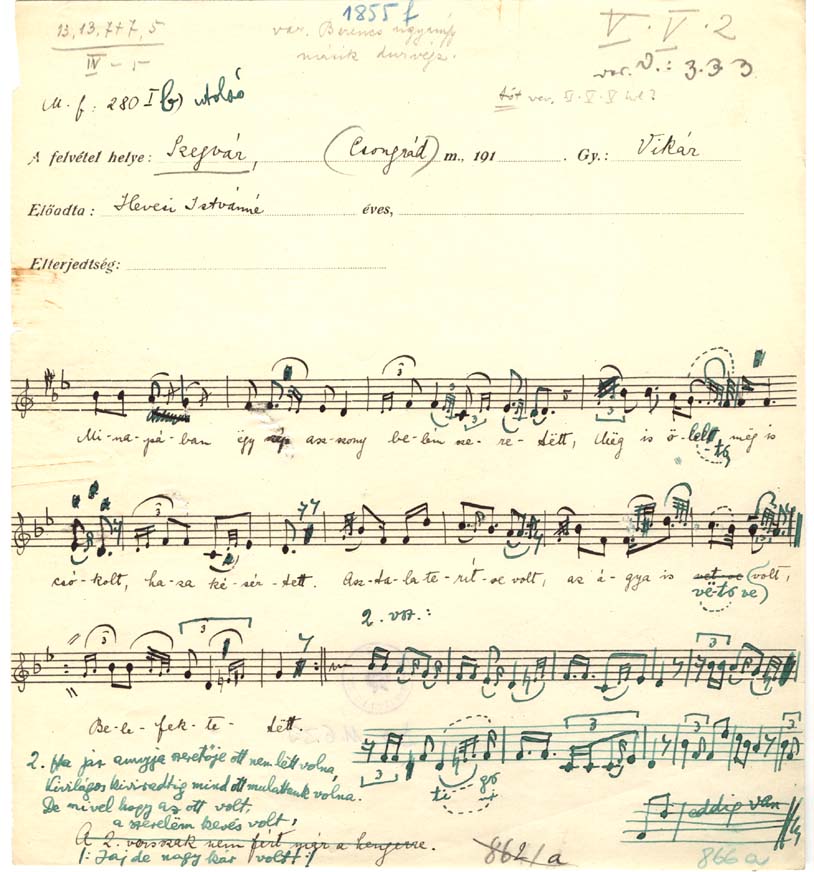 1855 f
13, 13, 7+7, 5
IV – 5
var. Berencs ugyanífy
másik
V · V · 2
var. V.: 3. 3 3
tót var.
M. f: 280 I b) utolsó
A felvétel helye: Szegvár, (Csongrád) m., 191 . Gy.: Vikár
Előadta: Hevesi Istvánné éves,
Elterjedtség:
Mi-na-pá-ban ëgy szép asz-szony be-lém sze-re-tëtt, Még is ö-lelt, még is
-tŭ
csó-kolt, ha-za ké-sér-tett. Asz-tala te-rít-ve volt, az á-gya is vet-ve volt,
vë-tŭ ve)
2. vsz.:
Be-le-fek-te-tëtt.
2. Ha jár annyja szeretője ott nem lëtt volna,
Kivilágos kivirradtig mind ott mulattunk volna.
De mivel hogy az ott volt,
a szerelëm kevés volt,
A 2. versszak nem fért már a hengerre.
|: Jaj de nagy kár volt! :|
eddig van
862/a
866 a